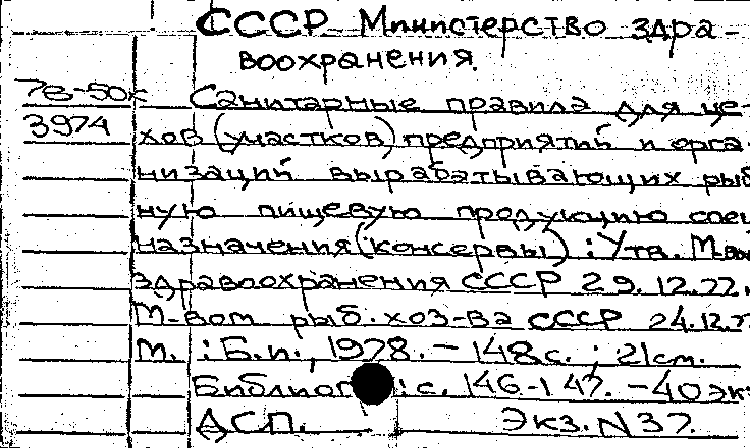 СССР Министерство здра-
воохранения.
78-50к Санитарные правила для це-
3974 хов (участков) предприятий и орга-
низаций вырабатывающих рыб
ную пищевую продукцию спец
назначения (консервы) : Утв. М-вом
здравоохранения СССР 29.12.77.
М-вом рыб. хоз-ва СССР 24.12.7
М. : Б.и., 1978. - 148с. ; 21см.
Библиог : с. 146-147. - 40 эк
ДСП. Экз. N 37.